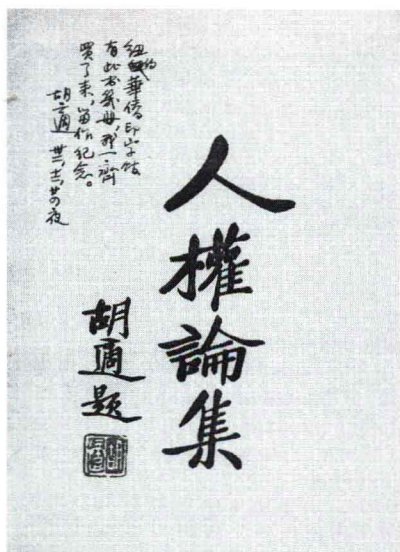 人權論集
胡適題
紐約華僑印字館
有此書幾册,我一齊
買了來,留作紀念。
胡適 夜